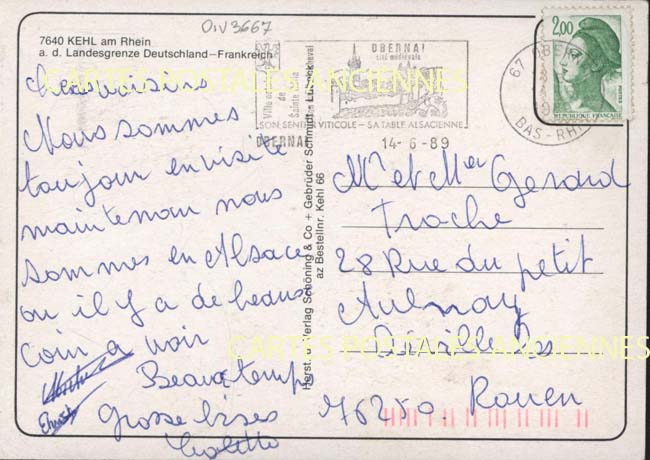 OIV3667
7640 KEHL am Rhein
a. d. Landesgrenze Deutschland–Frankreich
CARTES POSTALES ANCIENNES
Nous sommes
toujour en visite
maintenan nous
sommes en Alsace
ou il y a de beaus
coin a voir
Beaux temp
Grosse bises
OBERNAI
cité médiévale
SON SENTIER VITICOLE – SA TABLE ALSACIENNE
OBERNAI
14-6-89
67 OBERNAI
BAS-RHIN
2,00
POSTES
REPUBLIQUE FRANÇAISE
Herst. u. Verlag Schöning & Co + Gebrüder Schmidt, Lübeck
az Bestellnr. Kehl 66
Mr et Mme Gerard
Troche
28 Rue du petit
Aulnay
Déville les
76250. Rouen
CARTES POSTALES ANCIENNES